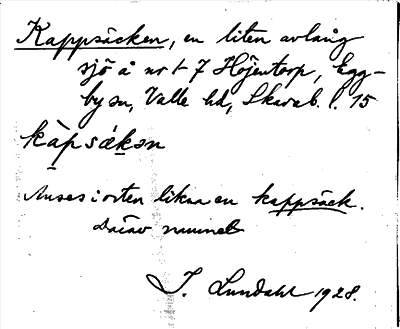 Kappsäcken, en liten avlång
sjö å nr 1-7 Höjentorp, Egg-
by sn, Valle hd, Skarab. l. 15
kàpsákən
Anses i orten likna en kappsäck.
Därav namnet
I. Lundahl 1928.